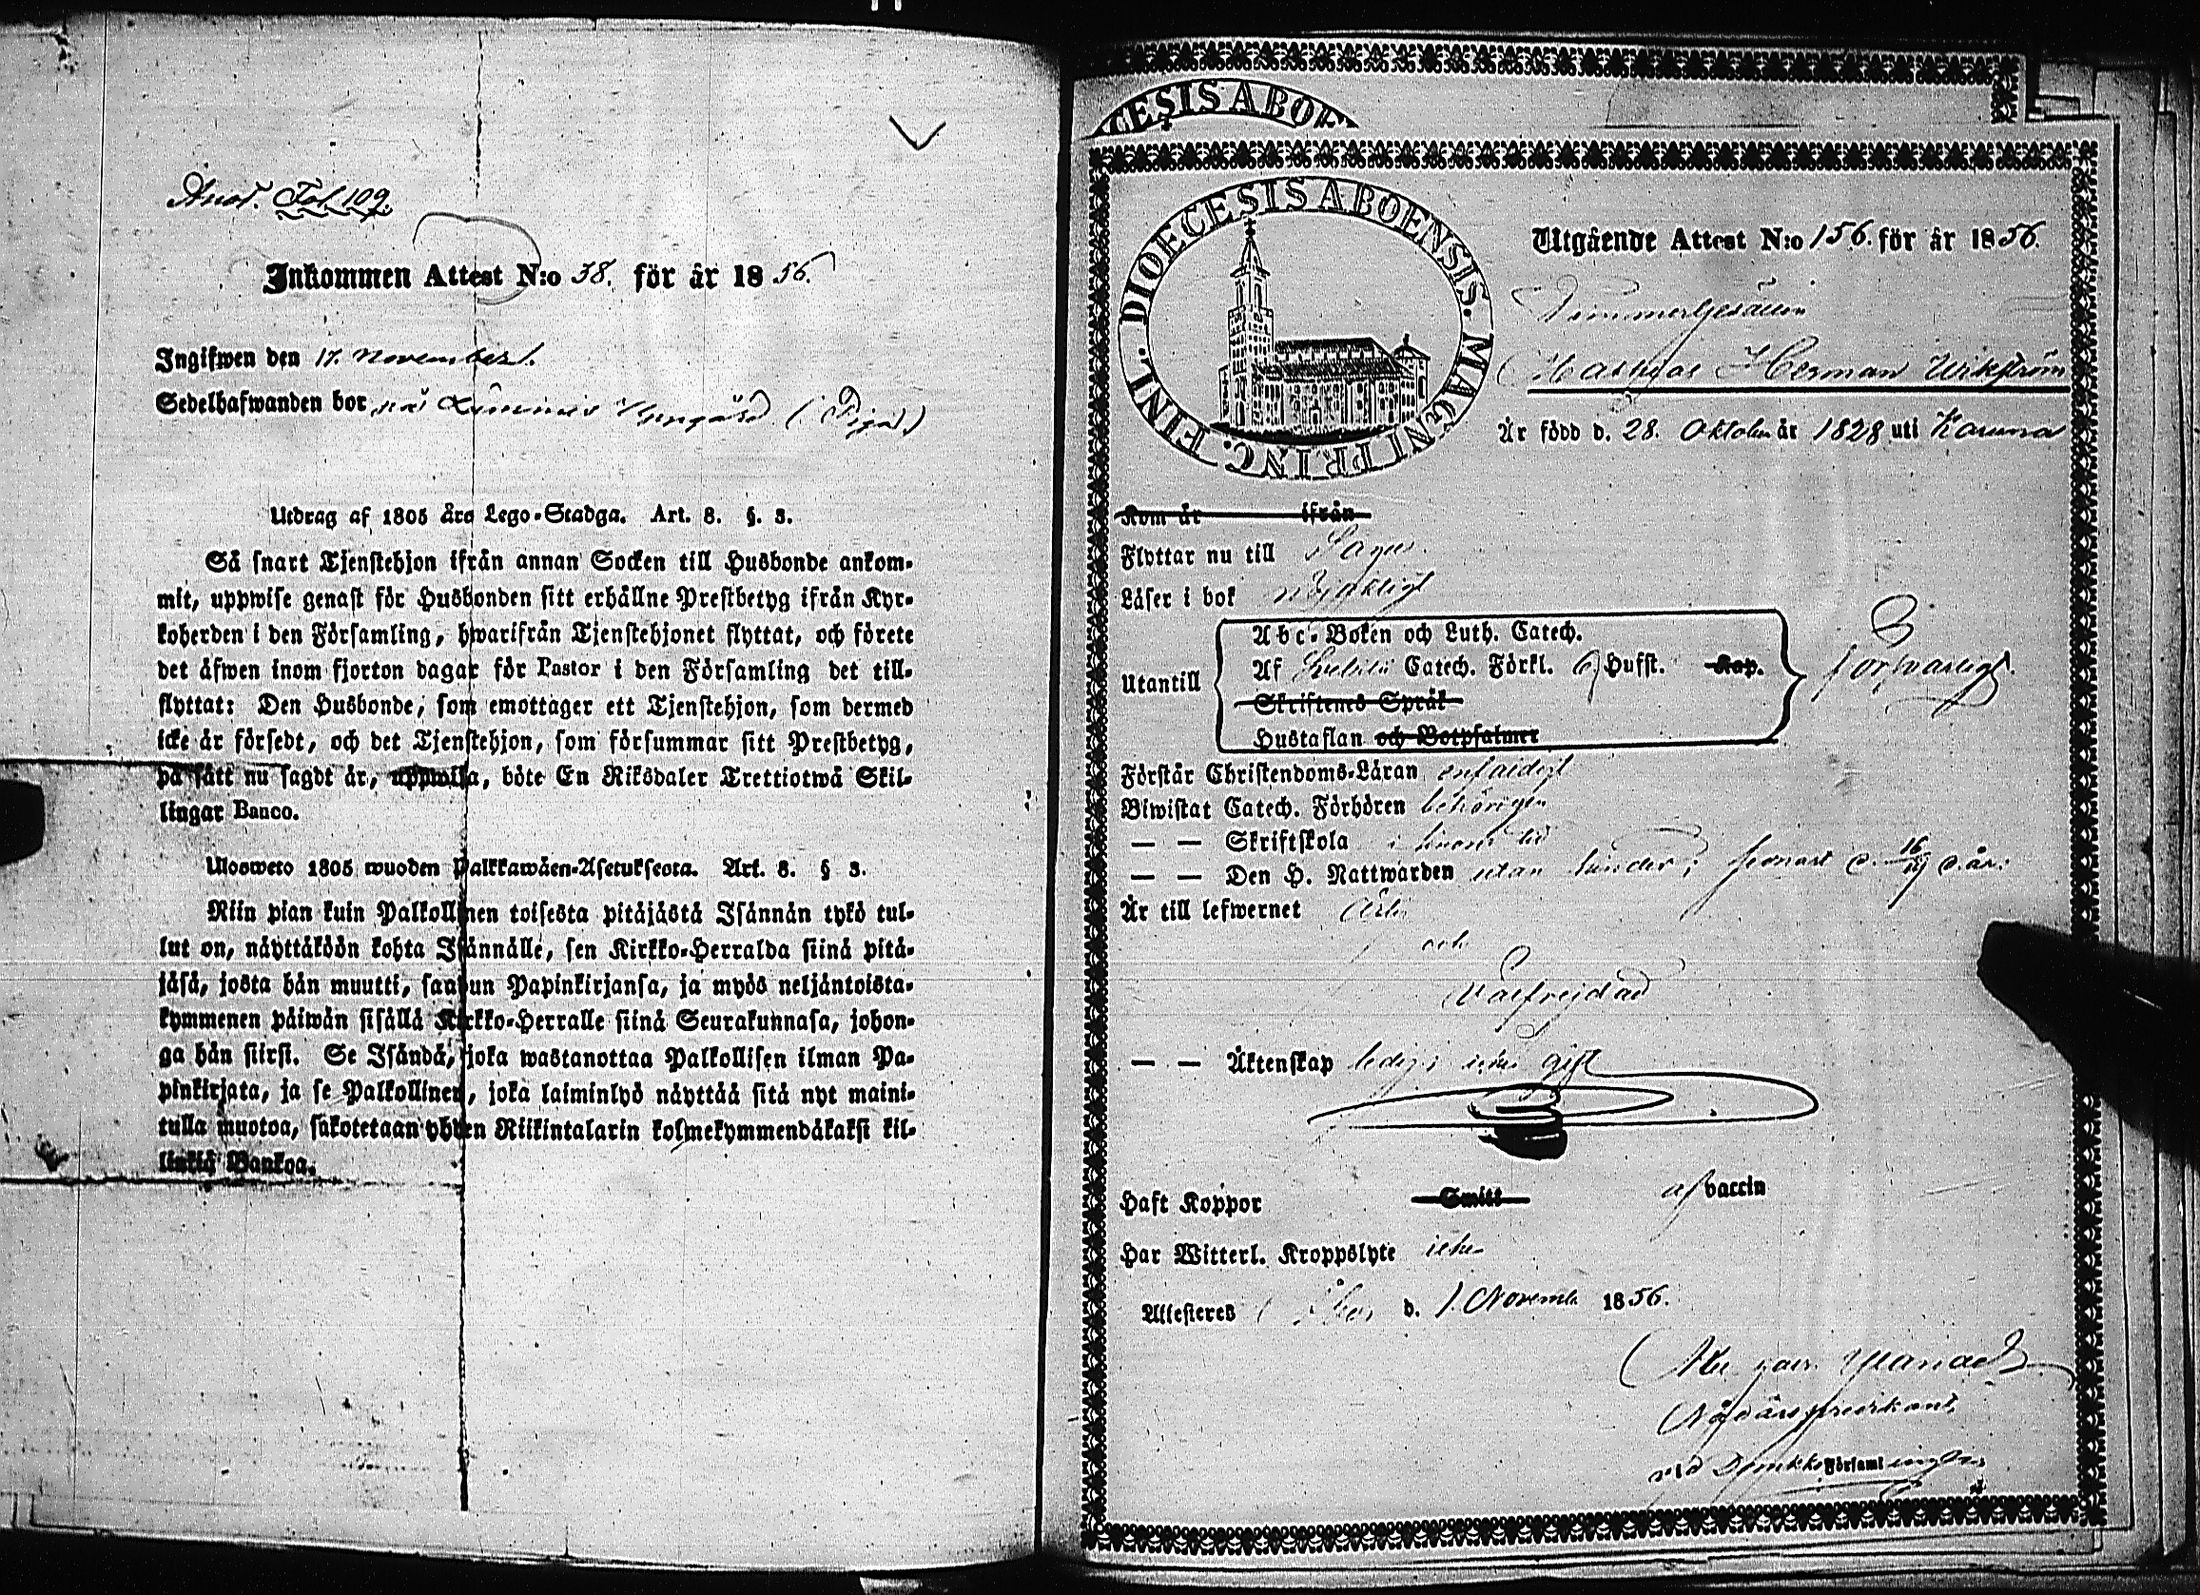 Anot. Fol. 109.
Inkommen Attest N:o 38. för år 1856.
Ingifwen den 17. November.
Sedelhafwanden bor på
Utdrag af 1805 års Lego-Stadga. Art. 8. §. 3.
Så snart Tjenstehjon ifrån annan Socken till Husbonde ankom-
mit, uppwise genast för Husbonden sitt erhållne Prestbetyg ifrån Kyr-
koherden i den Församling, hwarifrån Tjenstehjonet flyttat, och förete
det äfwen inom fjorton dagar för Pastor i den Församling det till-
flyttat: Den Husbonde, som emottager ett Tjenstehjon, som dermed
icke är försedt, och det Tjenstehjon, som försummar sitt Prestbetyg,
på sätt nu sagdt är, uppwisa, böte En Riksdaler Trettiotwå Skil-
lingar Banco.
Ulosweto 1805 wuoden Palkkawäen-Asetuksesta. Art. 8. § 3.
Niin pian kuin Palkollinen toisesta pitäjästä Isännän tykö tul-
lut on, näyttäköön kohta Isännälle, sen Kirkko-Herralda siinä pitä-
jäsä, josta hän muutti, saadun Papinkirjansa, ja myös neljäntoista-
kymmenen päiwän sisällä Kirkko-Herralle siinä Seurakunnasa, johon-
ga hän siirsi. Se Isändä, joka wastanottaa Palkollisen ilman Pa-
pinkirjata, ja se Palkollinen, joka laiminlyö näyttää sitä nyt maini-
tulla muotoa, sakotetaan yhden Riikintalarin kolmekymmendäkaksi kil-
linkiä Bankoa.
CESIS ABOE
DIOECESIS ABOENSIS. MAGNI PRINC. FINL.
Utgående Attest N:o 156. för år 1856.
Timmergesällen
Mathias Herman Wikström
Är född d. 28. Oktober år 1828 uti Karuna
Kom år ifrån
Flyttar nu till Sagu.
Läser i bok nöjaktigt
Utantill
Abc-Boken och Luth. Catech.
Af Catech. Förkl. 6 Hufst. Kap.
Skriftenes Språk
Hustaflan och Botpsalmer
försvarligt.
Förstår Christendoms-Läran enfaldigt
Biwistat Catech. Förhören behörigen
— — Skriftskola i sinom tid
— — Den H. Nattwarden utan hinder; senast d. 16/19 d. år.
Är till lefwernet ärlig
och
välfrejdad
— — Äktenskap ledig; icke gift
Haft Koppor Smitt af vaccin
Har Witterl. Kroppslyte icke
Attesteras i Åbo, d. 1. Novemb. 1856.
Nådårspredikant
vid Domkyrko Församlingen